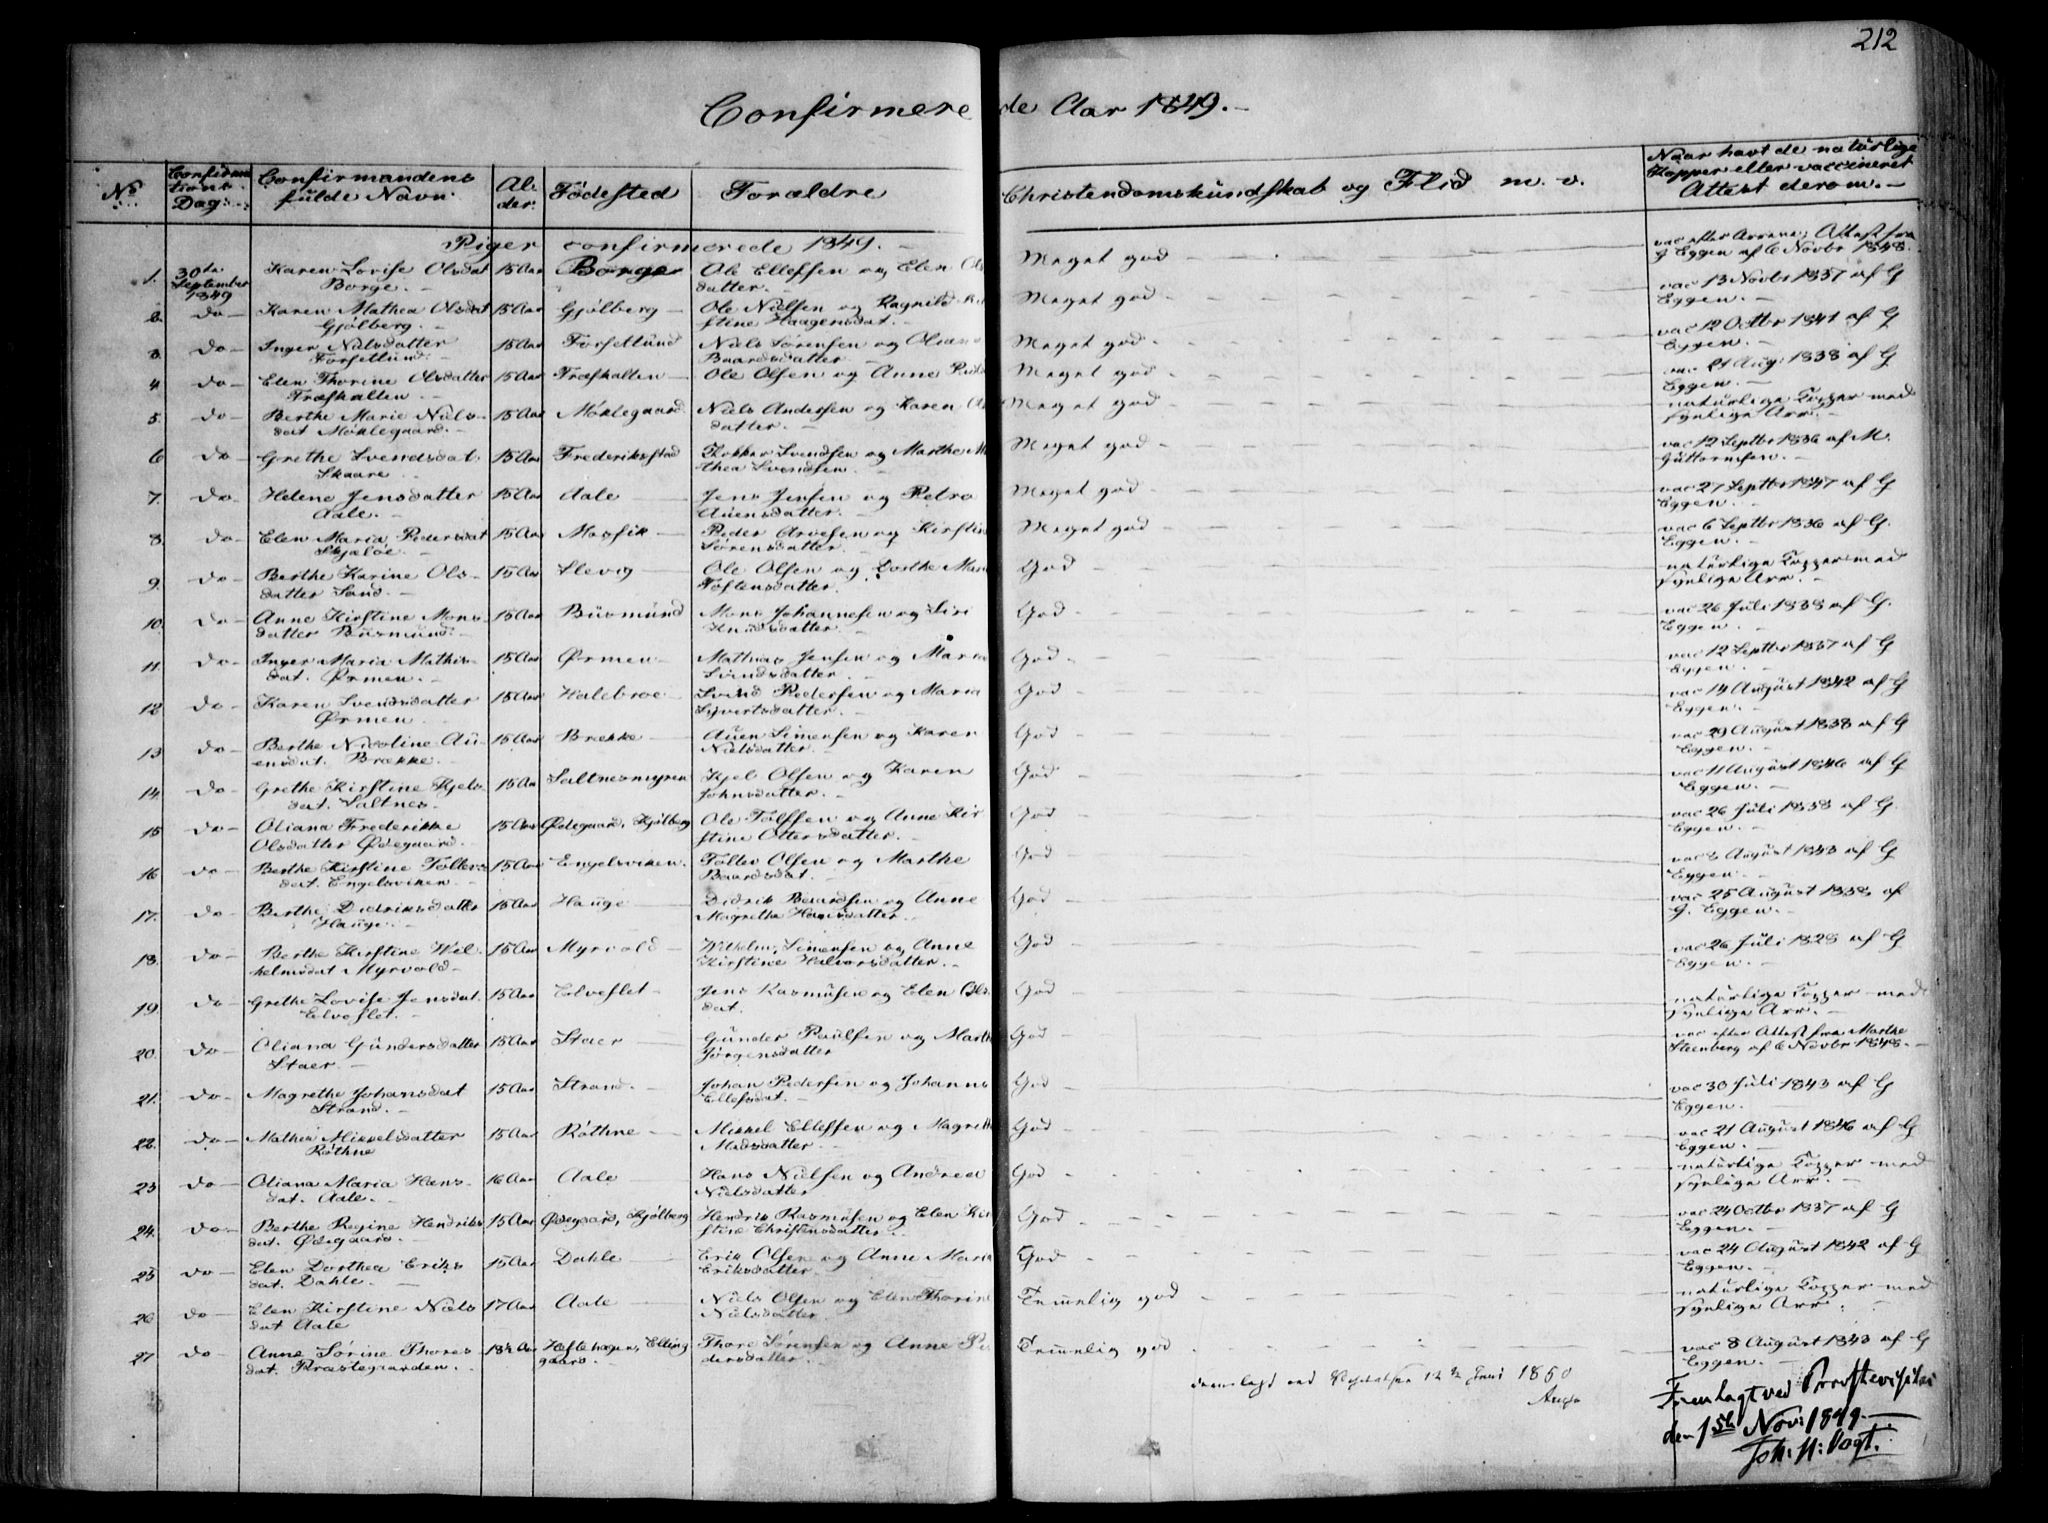 212
Confirmerede Aar 1849.
No
Confirmations Dag.
Confirmandens fulde Navn
Alder
Fødested
Forældre
Christendomskundskab og Flid m. v.
Naar havt de naturlige Kopper eller vaccineret Attest derom.
Piger confirmerede 1849.
1. 30te September 1849 Karen Lovise Olsdat Borge. 15 Aar Borge Ole Ellefsen og Elen Olsdatter. Meget god vac efter Attest fra G Eggen af 6 Novbr 1848.
2. do Karen Mathea Olsdat Gjølberg. 15 Aar Gjølberg Ole Nielsen og Ragnild Kirstine Haagensdat. Meget god vac 13 Novbr 1837 af G Eggen.
3. do Inger Nielsdatter Torsetlund. 15 Aar Torsetlund Niels Sørensen og Oliana Baardsdatter Meget god vac 12 Octbr 1841 af G Eggen.
4. do Elen Thorine Olsdatter Træskallen. 15 Aar Træskallen Ole Olsen og Anne Meget god vac 21 Aug: 1838 af G Eggen.
5. do Berthe Marie Nielsdat Møklegaard. 15 Aar Møklegaard Niels Andersen og Karen datter. Meget god naturlige Kopper med synlige Arr.
6 do Grethe Svendsdat. Skaare. 15 Aar Frederikstad Svendsen og Marthe Mathea Svendsen. Meget god vac 12 Septbr 1836 af M. Guttormsen.
7. do Helene Jensdatter Aale. 15 Aar Aale Jens Jensen og Petra Auensdatter. Meget god vac 27 Septbr 1847 af G Eggen.
8. do Elen Maria Pedersdat Skjæløe. 15 Aar Mosfik Peder Arvesen og Kirstine Sørensdatter. Meget god vac 6 Septbr 1836 af G. Eggen.
9. do Berthe Karine Olsdatter Sand. 15 Aar Slevig Ole Olsen og Dorthe Marie Tostensdatter. God naturlige Kopper med synlige Arr.
10. do Anne Kirstine Monsdatter Busmund. 15 Aar Busmund Mons Johannesen og Siri Knudsdatter. God vac 26 Juli 1838 af G. Eggen.
11. do Inger Maria Mathisdat. Ørmen. 15 Aar Ørmen Mathias Jensen og Maria Svendsdatter. God vac 12 Septbr 1837 af G Eggen.
12 do Karen Svendsdatter Ørmen 15 Aar Halebroe Svend Pedersen og Maria Syvertsdatter. God vac 14 August 1842 af G Eggen.
13 do Berthe Nicoline Auensdat. Brække. 15 Aar Brække Auen Simensen og Karen Nielsdatter. God vac 29 August 1838 af G Eggen.
14. do Grethe Kirstine Kjelsdat. Saltnes. 15 Aar Saltnesmyren Kjel Olsen og Karen Johnsdatter. God vac 11 August 1846 af G Eggen.
15 do Oliana Frederikke Olsdatter Ødegaard. 15 Aar Ødegaard, Kjølberg Ole Tolfsen og Anne Kirstine Ottersdatter. God vac 26 Juli 1838 af G. Eggen.
16 do Berthe Kirstine Tollefsdat. Engelsviken. 15 Aar Engelsviken. Tollev Olsen og Marthe Baardsdat. God vac 8 August 1843 af G Eggen.
17. do Berthe Didriksdatter Hauge. 15 Aar Hauge Didrik Baardsen og Anne Magrethe Hansdatter. God vac 25 August 1838 af G. Eggen.
18. do Berthe Kirstine Wilhelmsdat Myrvold. 15 Aar Myrvold Wilhelm Simensen og Anne Kirstine Halvorsdatter. God vac 26 Juli 1828 af G Eggen.
19. do Grethe Lovise Jensdat. Elveflet. 15 Aar Elveflet Jens Rasmusen og Elen Olsdat. God naturlige Kopper med synlige Arr.
20. do Oliana Gundersdatter Staer. 15 Aar Staer Gunder Paulsen og Marthe Jørgensdatter God vac efter Attest fra Marthe Steenberg af 6 Novbr 1848.
21. do Magrethe Johansdat Strand. 15 Aar Strand. Johan Pedersen og Johanne Ellefsdat. God vac 30 Juli 1843 af G Eggen.
22. do Mathea Mikkelsdatter Røthne 15 Aar Røthne Mikkel Ellefsen og Magrethe Madsdatter. God vac 21 August 1846 af G Eggen.
23 do Oliana Maria Hansdat. Aale. 16 Aar Aale Hans Nielsen og Andrea Nielsdatter God naturlige Kopper med synlige Arr.
24. do Berthe Regine Hendriksdat. Ødegaard. 15 Aar Ødegaard, Kjølberg Hendrik Rasmusen og Elen Kirstine Christensdatter. God vac 24 Octbr 1837 af G Eggen.
25 do Elen Dorthea Eriksdat. Dahle. 15 Aar Dahle Erik Olsen og Anne Maria Eriksdatter God vac 24 August 1842 af G Eggen.
26 do Elen Kirstine Nielsdat Aale 17 Aar Aale Niels Olsen og Elen Thorine Nielsdatter Temmelig god naturlige Kopper med synlige Arr.
27 do Anne Sørine Thoresdat. Præstegaarden. 18½ Aar Elling gaard. Thore Sørensen og Anne Pedersdatter. Temmelig god vac 8 August 1843 af G Eggen.
Fremlagt ved Juni 1850
Fremlagt ved Provstevisitats
den 1ste Nov: 1849.
Joh. H: Vogt.